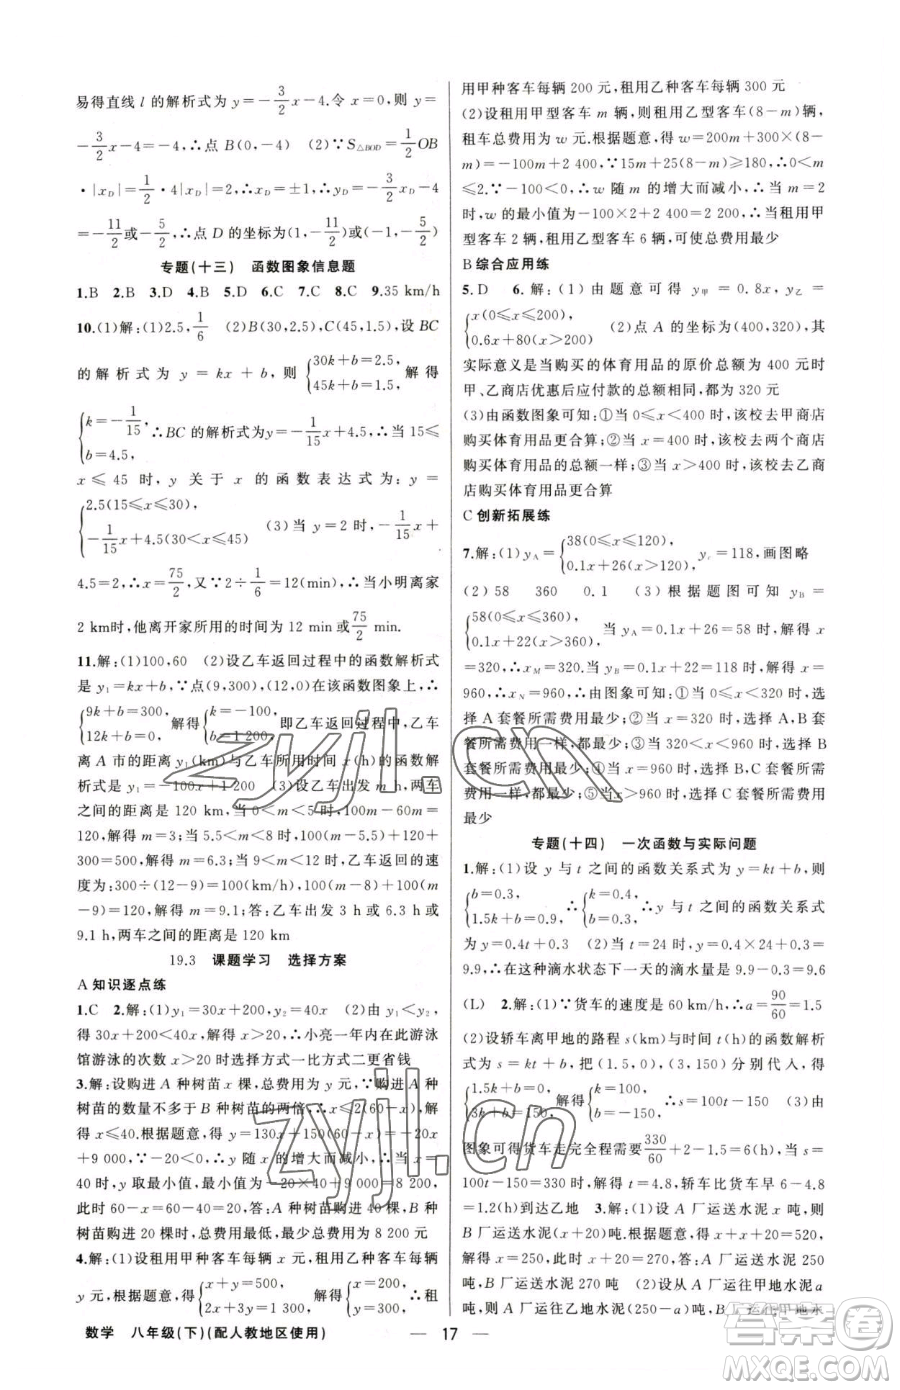 易得直线 l 的解析式为 y=-3/2x-4.令 x=0,则 y=
-3/2x-4=-4,∴点 B(0,-4)　(2)∵S△BOD=1/2OB
·|xD|=1/2·4|xD|=2,∴xD=±1,∴yD=-3/2xD-4
=-11/2或-5/2,∴点 D 的坐标为(1,-11/2)或(-1,-5/2)
专题(十三)　函数图象信息题
1.B　2.B　3.D　4.B　5.D　6.C　7.C　8.C　9.35 km/h
10.(1)解:(1)2.5,1/6　(2)B(30,2.5),C(45,1.5),设 BC
的解析式为 y=kx+b,则 {30k+b=2.5, 45k+b=1.5, 解得
{k=-1/15, b=4.5, ∴BC 的解析式为y=-1/15x+4.5,∴当 15≤
x≤45 时,y 关于 x 的函数表达式为:y=
{2.5(15≤x≤30), -1/15x+4.5(30<x≤45)　(3)当 y=2 时,-1/15x+
4.5=2,∴x=75/2,又∵2÷1/6=12(min),∴当小明离家
2 km时,他离开家所用的时间为 12 min或75/2min.
11.解:(1)100,60　(2)设乙车返回过程中的函数解析式
是 y₁=kx+b,∵点(9,300),(12,0)在该函数图象上,∴
{9k+b=300, 12k+b=0, 解得{k=-100, b=1 200, 即乙车返回过程中,乙车
离 A 市的距离 y₁(km)与乙车所用时间 x(h)的函数解
析式是 y₁=-100x+1 200　(3)设乙车出发 m h时,两车
之间的距离是 120 km,当 0<m<5 时,100m-60m=
120,解得 m=3;当 5.5<m<8 时,100(m-5.5)+120+
60m=300,解得 m=6.3;当 9<m<12 时,乙车返回的速度为:
300÷(12-9)=100(km/h),则 100(m-8)+100(m
-9)=120,解得 m=9.1;答:乙车出发 3 h 或 6.3 h或
9.1 h,两车之间的距离是 120 km
19.3　课题学习　选择方案
A 知识逐点练
1.C　2.解:(1)y₁=30x+200,y₂=40x　(2)由 y₁<y₂,
得 30x+200<40x,解得 x>20,∴小亮一年内在此游泳
馆游泳的次数 x>20 时选择方式一比方式二更省钱
3.解:设购进 A 种树苗 x 棵,总费用为 y 元,∵购进 A 种
树苗的数量不多于 B 种树苗的两倍,∴x≤2(60-x),∴
x≤40.根据题意,得 y=130x+150(60-x)=-20x
+9 000,∵y 随 x 的增大而减小,∴当 x=
40 时,y 取最小值,最小值为-20×40+9 000=8 200,此
时 60-x=60-40=20,答:当 A 种树苗购进 40 棵,B
种树苗购进 20 棵时,总费用最少,最少费用为 8 200 元
4.解:(1)设租用甲种客车每辆 x 元,租用乙种客车每辆
y 元,根据题意可得{x+y=500, 2x+3y=1 300, 解得{x=200, y=300, 答:租
用甲种客车每辆 200 元,租用乙种客车每辆 300 元
(2)设租用甲型客车 m 辆,则租用乙型客车(8-m)辆,
租车总费用为 w 元.根据题意,得 w=200m+300×(8-
m)=-100m+2 400,∵15m+25(8-m)≥180,∴m
≤2.∵-100<0,∴w 随 m 的增大而减小,∴当 m=2
时,w 的最小值为-100×2+2 400=2 200,∴当租用甲
型客车 2 辆,租用乙型客车 6 辆,可使总费用最少
B 综合应用练
5.D　6.解:(1)由题意可得 y甲=0.8x,y乙=
{x(0≤x≤200), 0.6x+80(x>200)　(2)点 A 的坐标为(400,320),其
实际意义是当购买的体育用品的原价总额为 400 元时
甲、乙商店优惠后应付款的总额相同,都为 320 元
(3)由函数图象可知:①当 0≤x<400 时,该校去甲商店
购买体育用品更合算;②当 x=400 时,该校去两个商店
购买体育用品的总额一样;③当 x>400 时,该校去乙商
店购买体育用品更合算
C 创新拓展练
7.解:(1)yA={38(0≤x≤120), 0.1x+26(x>120), yc=118,画图略
(2)58　360　0.1　(3)根据题图可知 yB=
{58(0≤x≤360), 0.1x+22(x>360), 当 yA=0.1x+26=58 时,解得 x
=320,∴xM=320;当 yB=0.1x+22=118 时,解得 x=
960,∴xN=960,由函数图象可知:①当 0≤x<320 时,
选择 A 套餐所需费用最少;②当 x=320 时,选择 A、B 套
餐所需费用一样,都最少;③当 320<x<960 时,选择 B
套餐所需费用最少;④当 x=960 时,选择 B、C 套餐所需
费用一样,都最少;⑤当 x>960 时,选择 C 套餐所需费用
最少
专题(十四)　一次函数与实际问题
1.解:(1)设 y 与 t 之间的函数关系式为 y=kt+b,则
{b=0.3, 1.5k+b=0.9, 解得{k=0.4, b=0.3, ∴y 与 t 之间的函数关系式
为 y=0.4t+0.3　(2)当 t=24 时,y=0.4×24+0.3=
9.9,∴在这种滴水状态下一天的滴水量是 9.9-0.3=9.6
(L)　2.解:(1)∵货车的速度是 60 km/h,∴a=90/60=1.5
(2)设轿车离甲地的路程 s(km)与时间 t(h)的函数解析
式为 s=kt+b,把(1.5,0),(3,150)分别代入,得
{1.5k+b=0, 3k+b=150, 解得{k=100, b=-150, ∴s=100t-150　(3)由
图象可得货车走完全程需要330/60+2-1.5=6(h),当
100t-150=330 时,解得 t=4.8,轿车比货车早 6-4.8
=1.2(h)到达乙地　3.解:(1)设 A 厂运送水泥 x 吨,则
B 厂运送水泥(x+20)吨,根据题意,得 x+x+20=520,
解得 x=250,此时 x+20=270,答:A 厂运送水泥 250
吨,B 厂运送水泥270 吨　(2)设从 A 厂运往甲地水泥a
吨,则 A 厂运往乙地水泥(250-a)吨,B 厂运往甲地水
数学　八年级(下)(配人教地区使用)　— 17 —
zyjl.cn
zyjl.cn
答案圈
MXQE.COM